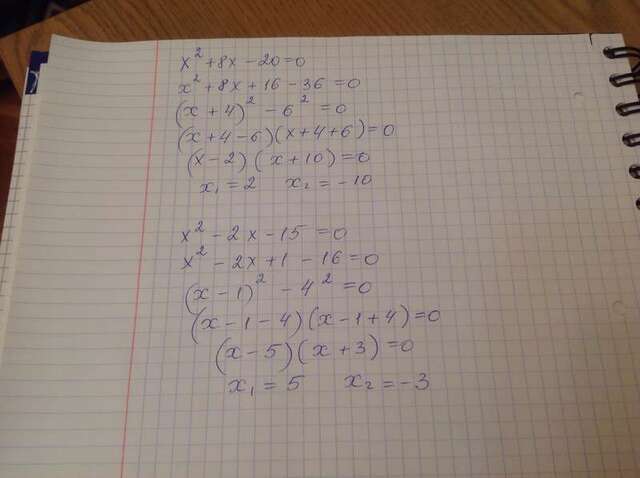 x² + 8x - 20 = 0
x² + 8x + 16 - 36 = 0
(x + 4)² - 6² = 0
(x + 4 - 6)(x + 4 + 6) = 0
(x - 2)(x + 10) = 0
x₁ = 2 x₂ = -10
x² - 2x - 15 = 0
x² - 2x + 1 - 16 = 0
(x - 1)² - 4² = 0
(x - 1 - 4)(x - 1 + 4) = 0
(x - 5)(x + 3) = 0
x₁ = 5 x₂ = -3